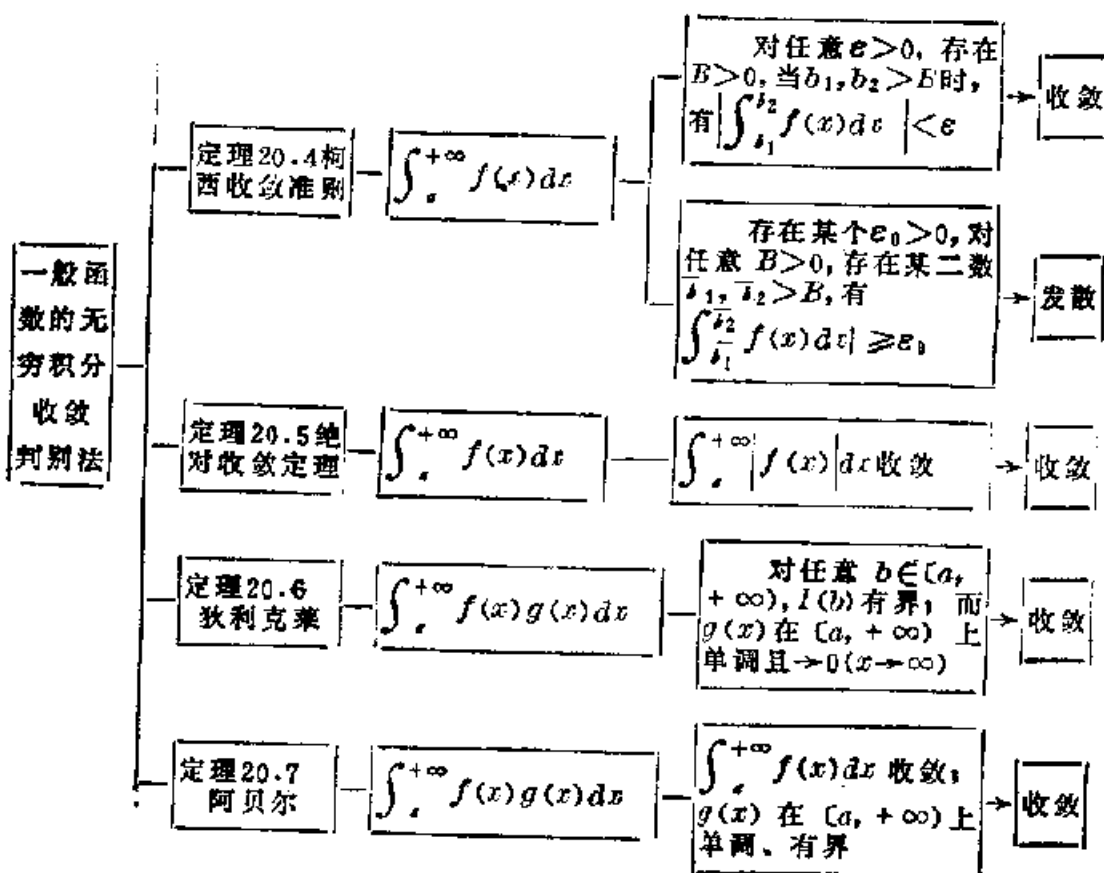 一般函
数的无
穷积分
收敛
判别法
定理20.4柯
西收敛准则
∫ₐ^{+∞} f(x)dx
对任意ε>0, 存在
B>0, 当b₁, b₂>B时,
有|∫_{b₁}^{b₂} f(x)dx|<ε
收敛
存在某个ε₀>0, 对
任意 B>0, 存在某二数
b̄₁, b̄₂>B, 有
∫_{b̄₁}^{b̄₂} f(x)dx| ≥ε₀
发散
定理20.5绝
对收敛定理
∫ₐ^{+∞} f(x)dx
∫ₐ^{+∞} |f(x)|dx收敛
收敛
定理20.6
狄利克莱
∫ₐ^{+∞} f(x)g(x)dx
对任意 b∈[a,
+∞), I(b)有界; 而
g(x)在 [a, +∞) 上
单调且→0(x→∞)
收敛
定理20.7
阿贝尔
∫ₐ^{+∞} f(x)g(x)dx
∫ₐ^{+∞} f(x)dx 收敛;
g(x) 在 [a, +∞)上
单调、有界
收敛